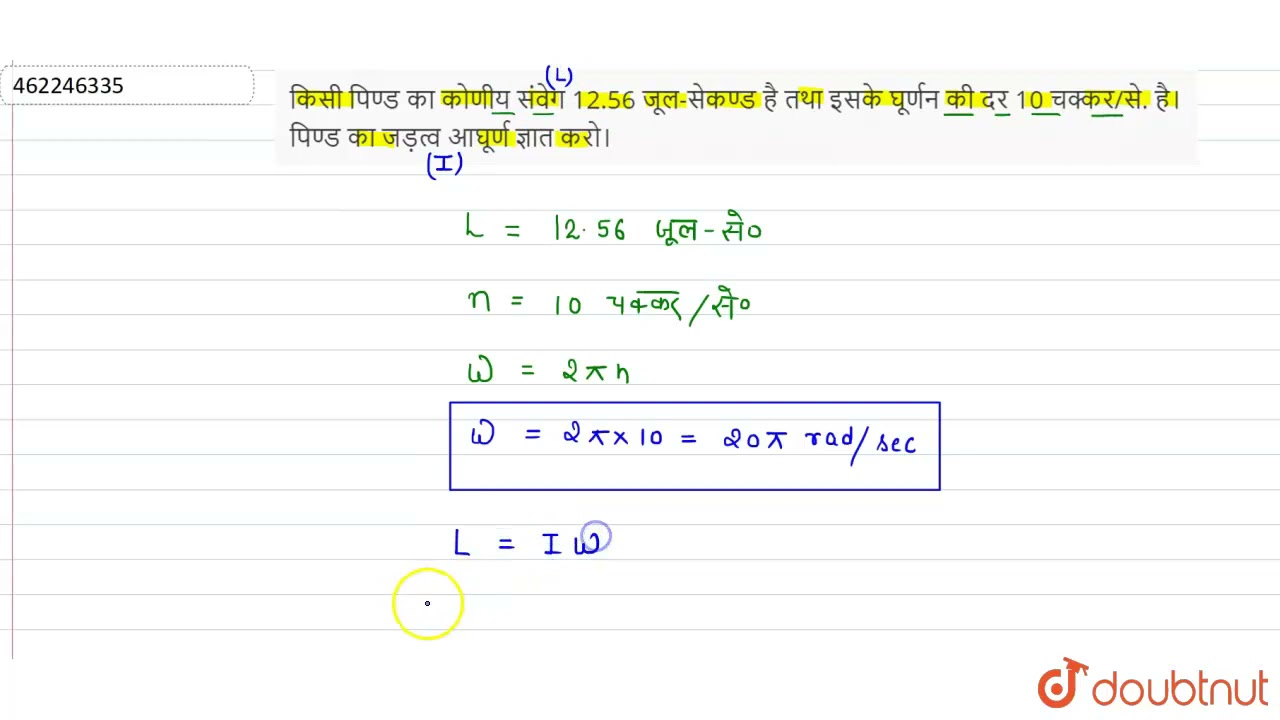 462246335
(L)
किसी पिण्ड का कोणीय संवेग 12.56 जूल-सेकण्ड है तथा इसके घूर्णन की दर 10 चक्कर/से. है।
पिण्ड का जड़त्व आघूर्ण ज्ञात करो।
(I)
L = 12.56 जूल-से०
n = 10 चक्कर/से०
ω = 2πn
ω = 2π×10 = 20π rad/sec
L = Iω
doubtnut